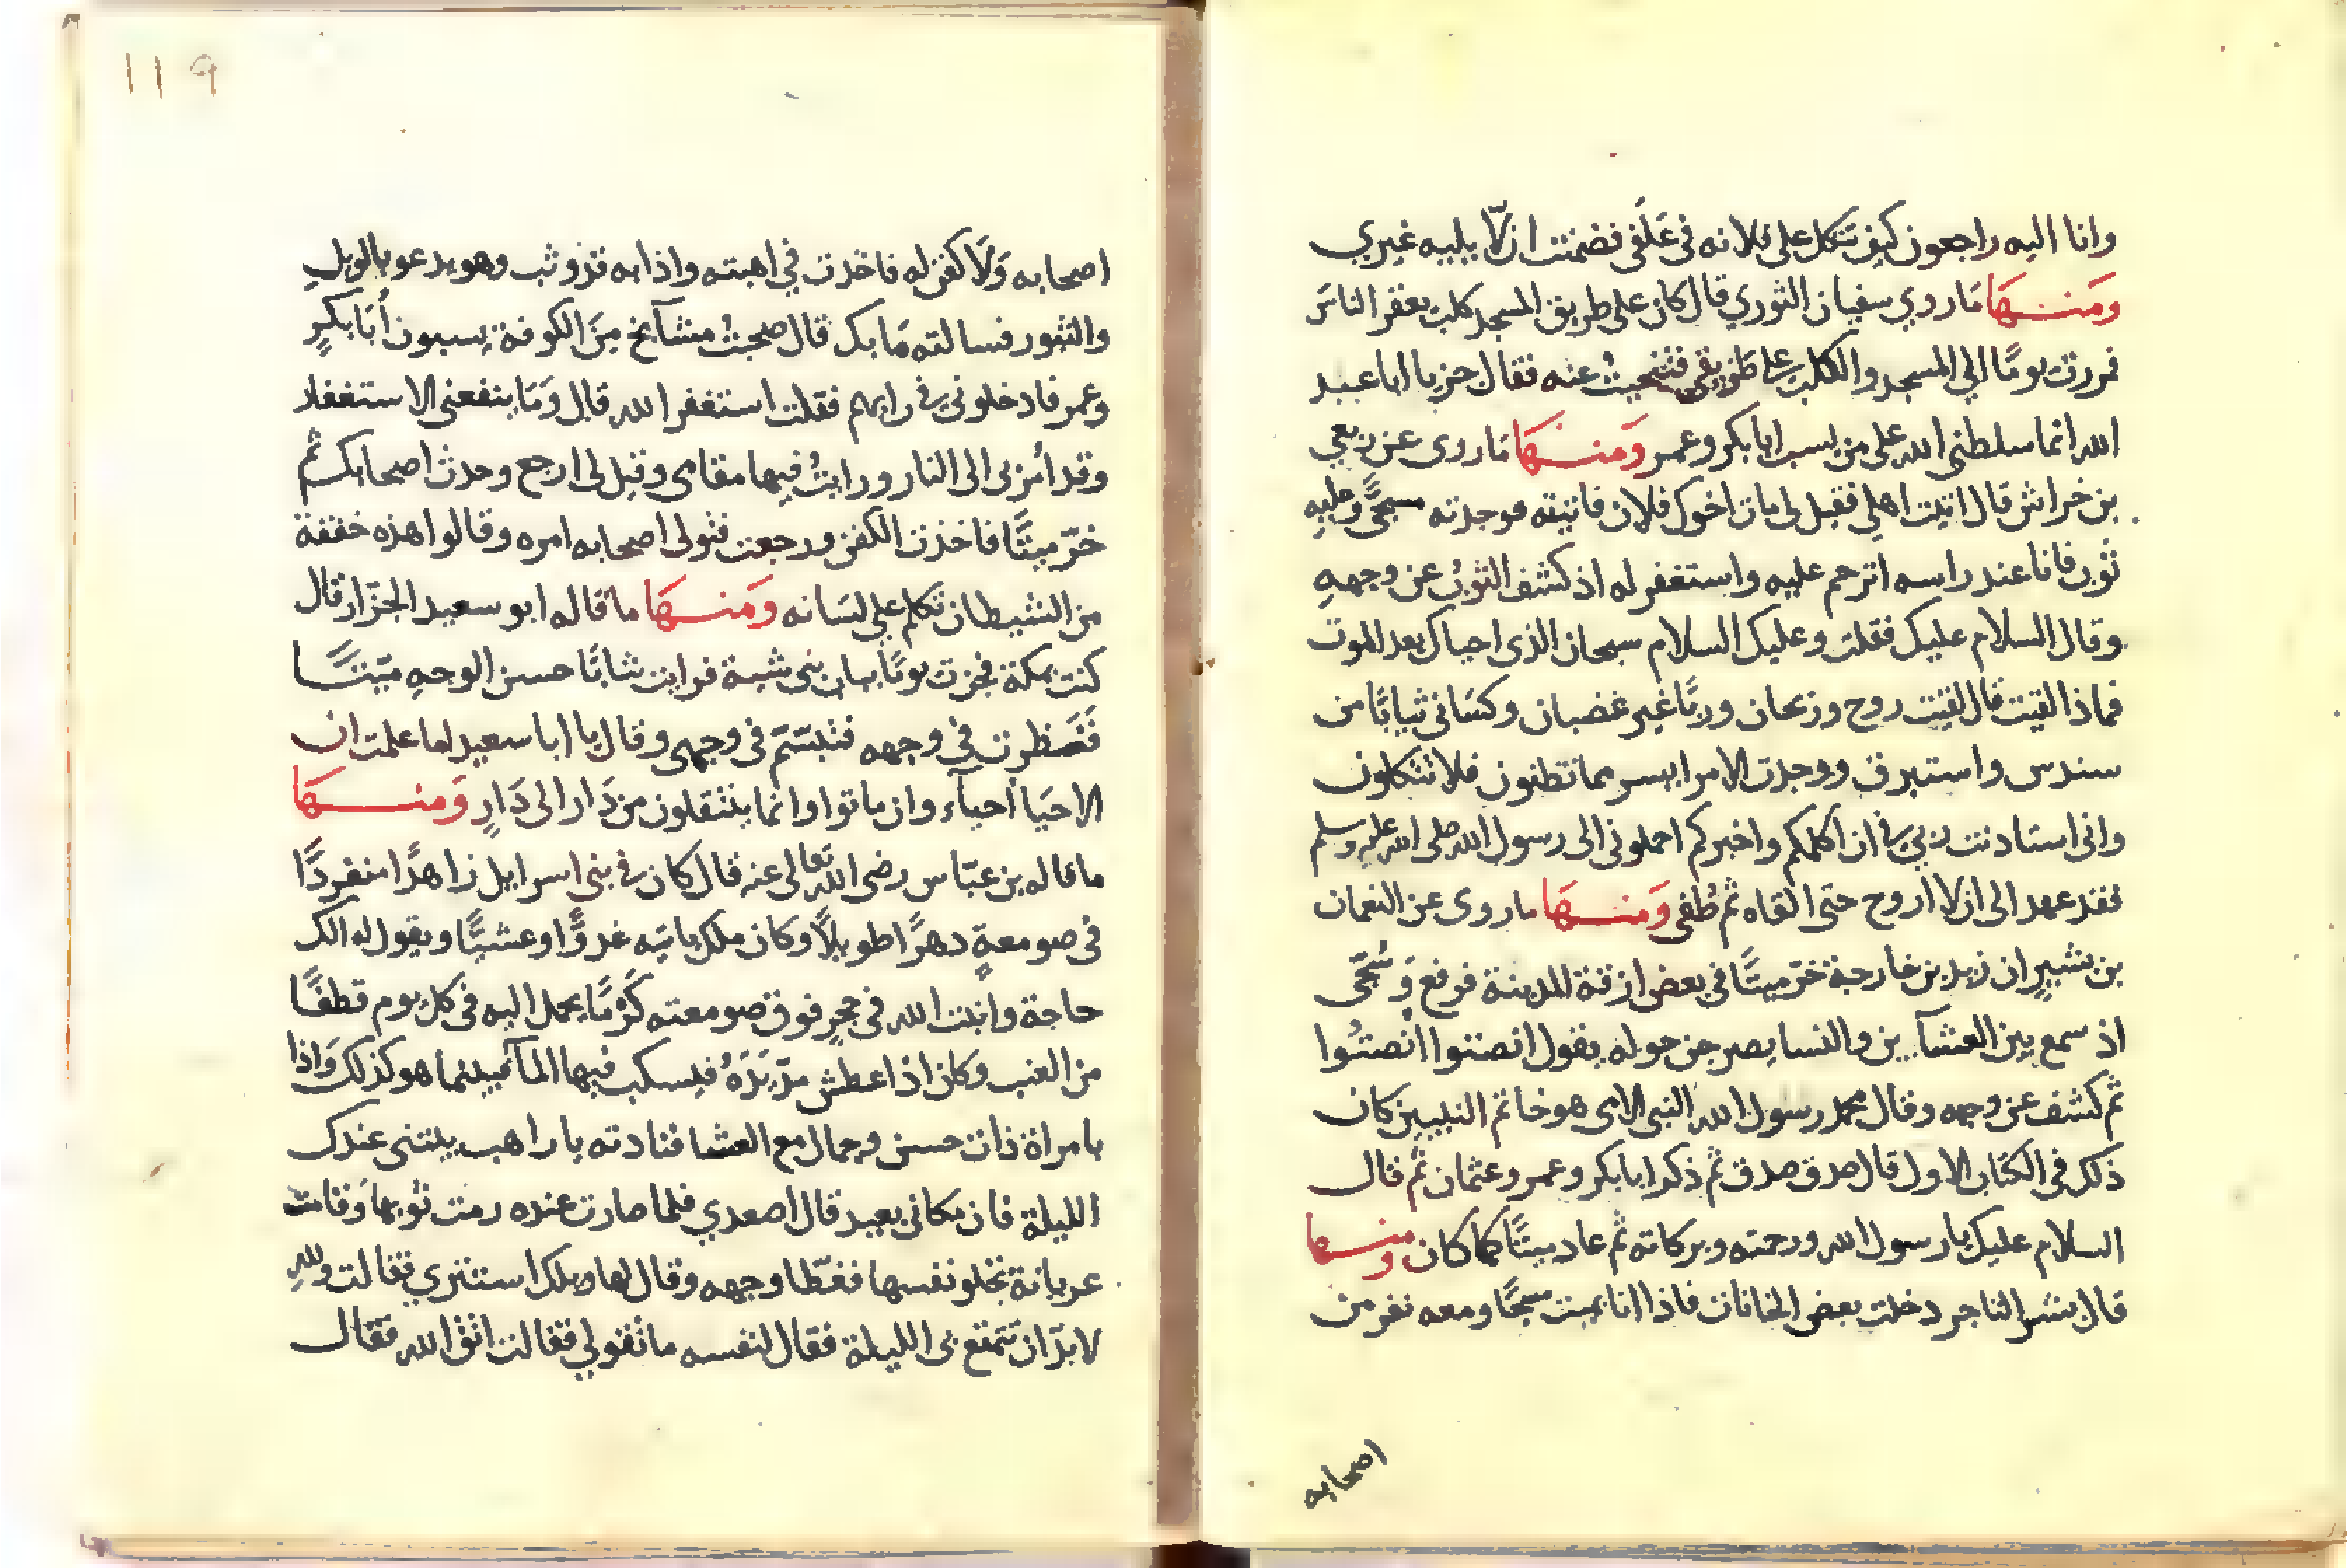 وانا اليه راجعون كيف تتكل على فلانه في علفي فضمنت ان لا يليه غيري
ومنها ما روي سفيان الثوري قال كان على طريق المسجد كلب يعقر الناس
فمررت يومًا الى المسجد والكلب على طريقي فتنحيت عنه فقال جز يا ابا عبد
الله انما سلطني الله على من يسب ابا بكر وعمر ومنها ما روى عن ربعي
بن خراش قال اتيت اهلي فقيل لى مات اخوك فلان فاتيته فوجدته مسجى وعليه
ثوب فانا عند راسه اترحم عليه واستغفر له اذ كشف الثوب عن وجهه
وقال السلام عليك فقلت وعليك السلام سبحان الذى احياك بعد الموت
فماذا لقيت قال لقيت روح وريحان وربًا غير غضبان وكسانى ثيابًا من
سندس واستبرق ووجدت الامر ايسر مما تظنون فلا تتكلون
وانى استاذنت ربي في ان اكلمكم واخبركم احملونى الى رسول الله صلى الله عليه وسلم
فقد عهد الى ان لا اروح حتى القاه ثم طفى ومنها ما روى عن النعمان
بن بشير ان زيد بن خارجة خرّ ميتًا في بعض ازقة المدينة فرفع وسُجّى
اذ سمع بين العشاين والنسا يصرخن حوله يقول انصتوا انصتوا
ثم كشف عن وجهه وقال محمد رسول الله النبي الامى هو خاتم النبيين كان
ذلك فى الكتاب الاول قال صدق صدق ثم ذكر ابا بكر وعمر وعثمان ثم قال
السلام عليك يا رسول الله ورحمته وبركاته ثم عاد ميتًا كما كان ومنها
قال بشر التاجر دخلت بعض الخانات فاذا انا بميت مسجًا ومعه نفر من
اصحابه
١١٩
اصحابه وَلَا كفن له فاخذت في اهبته واذا به قد وثب وهو يدعو بالويل
والثبور فسالته مَا بك قال صحبتُ مشآيخ مِنَ الكوفة يسبون أبَا بكرٍ
وعمر فادخلونى في رايهم فقلت استغفر الله قال وَمَا ينفعنى الاستغفار
وقد اُمر بى الى النار ورايتُ فيها مقامى وقيل لى ارجع وحدث اصحابك ثم
خرّ ميتًا فاخذت الكفن ورجعت فتولى اصحابه امره وقالوا هذه خفقة
من الشيطان تكلم على لسَانه ومنها ما قاله ابو سعيد الخرّاز قال
كنت بمكة فجزت يومًا بباب بنى شيبة فرايت شابًا حسن الوجهِ ميّتًا
فنظرت في وجهه فتبسّم فى وجهى وقال يا ابا سعيد اما علمت ان
الاحيَا أحيآء وان ماتوا وانما ينتقلون من دَار الى دَارٍ وَمنها
ما قاله بن عبّاس رضى الله تعالى عنه قال كان فى بنى اسرايل زاهدًا منفردًا
فى صومعةٍ دهرًا طويلًا وكان ملك ياتيه غدوًّا وعشيًّا ويقول له الك
حاجة وانبت الله فى حجرٍ فوق صومعته كَرْمًا يحمل اليه فى كل يوم قطفًا
من العنب وكان اذا عطش مدّ يَدَهُ فيسكب فيها المآ فبينما هو كذلك وَاذا
بامراة ذات حسن وجمال مع العشا فنادته يا راهب بيتنى عندك
الليلة فان مكانى بعيد قال اصعدي فلما صارت عنده رمت ثوبها وَقامت
عريانة تجلو نفسها فغطّا وجهه وقال لها ويلك استتري فقالت والله
لا بدّ ان تتمتع بى الليلة فقال لنفسه ما تقولي فقالت اتق الله فقال